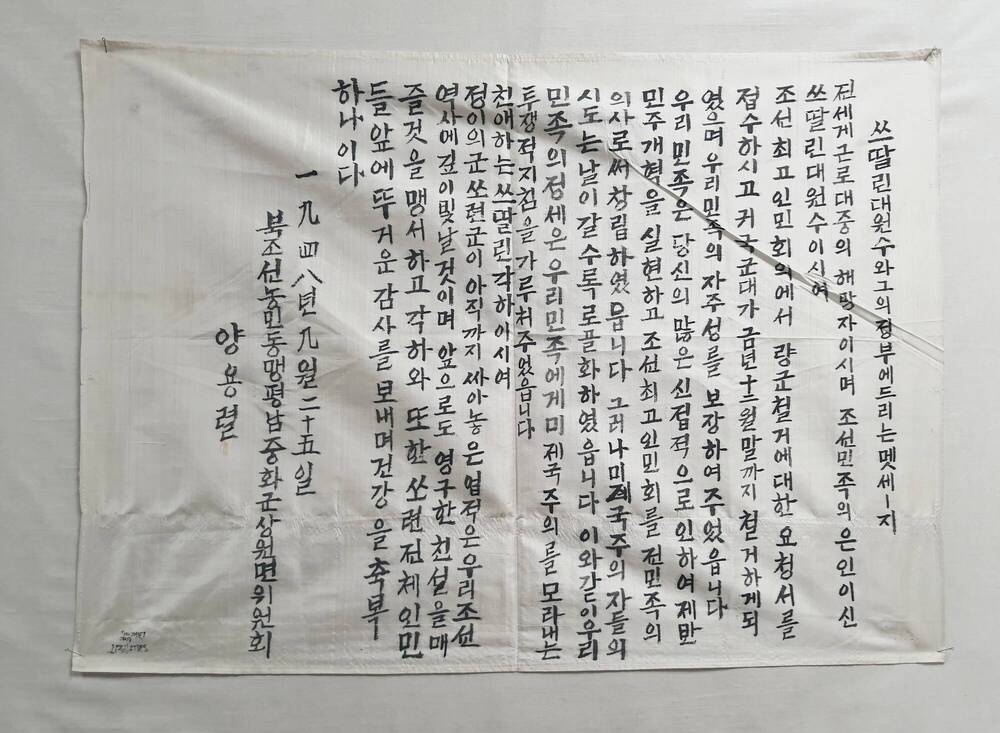 쓰딸린대원수와그의정부에드리는멧세ㅣ지
전세게근로대중의 해방자이시며 조선민족의 은인이신
쓰딸린대원수이시여
조선최고인민회의에서 량군철거에대한 요청서를
접수하시고 귀국군대가 금년十二월말까지 철거하게되
였으며 우리민족의 자주성를 보장하여주었읍니다
우리민족은 당신의 많은 신접적으로인하여 제반
민주개혁을 실현하고 조선최고인민회를 전민족의
의사로써창립하였읍니다 그러나미제국주의자들의
시도는 날이갈수록로골화하였읍니다 이와같은우리
민족의정세은우리민족에게미제국주의를모라내는
투쟁적지침을가루처주었읍니다
친애하는쓰딸린각하이시여
정이의군쏘련군이아직까지싸아놓은업적은우리조선
역사에깊이빛날것이며 앞으로도 영구한친선을매
즐것을맹서하고각하와 또한쏘련전체인민
들앞에뚜거운감사를보내며건강을축복
하나이다
一九四八년九월二十五일
북조선농민동맹평남중화군상원면위원회
양용렬